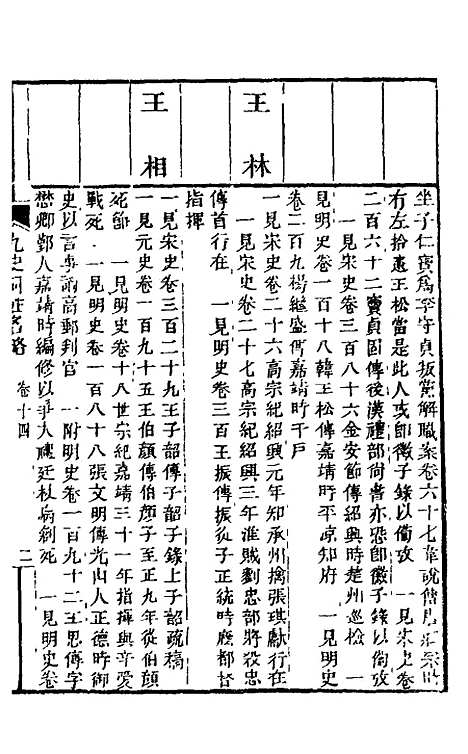 坐子仁寶爲李守貞坂黨解職案卷六十七韋說傳唐莊宗時
有左拾遺王松當是此人或卽徽子錄以備攷　一見宋史卷
二百六十二竇貞固傳後漢禮部尙書亦恐卽徽子錄以備攷
　一見宋史卷三百八十六金安節傳紹興時楚州巡檢　一
見明史卷一百十八韓王松傳嘉靖時平凉知府　一見明史
卷二百九楊繼盛傳嘉靖時千戶
王林
一見宋史卷二十六高宗紀紹興元年知承州擒張琪獻行在
　一見宋史卷二十七高宗紀紹興三年淮賊劉忠部將殺忠
傳首行在　一見明史卷三百王振傳振從子正統時廕都督
指揮
王相
一見宋史卷三百二十九王子韶傳子韶子錄上子韶疏稿
一見元史卷一百九十五王伯顏傳伯顏子至正九年從伯顏
死節　一見明史卷十八世宗紀嘉靖三十一年指揮與辛愛
戰死　一見明史卷一百八十八張文明傳光山人正德時御
史以言事謫高郵判官　一附明史卷一百九十二王思傳字
懋卿鄞人嘉靖時編修以爭大禮廷杖病創死　一見明史卷
九史同姓名略　卷十四　二